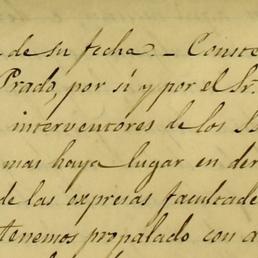 de su fecha. - Conste
Prado, por sí y por el Sr.
interventores de los
mas haya lugar en der
de las expresas facultade
tenemos propalado con a